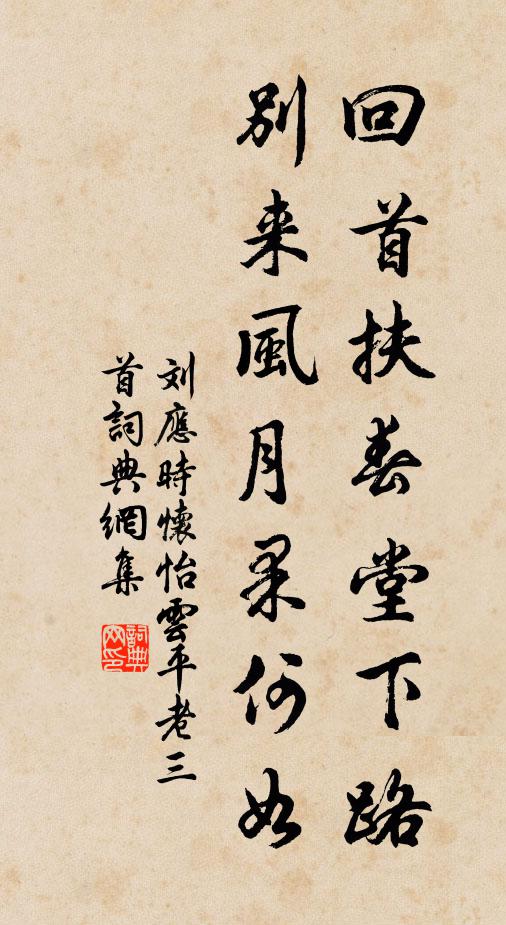 回首扶春堂下路
别来風月果何如
刘應時懷怡雲平老三
首詞典網集
詞典
网印